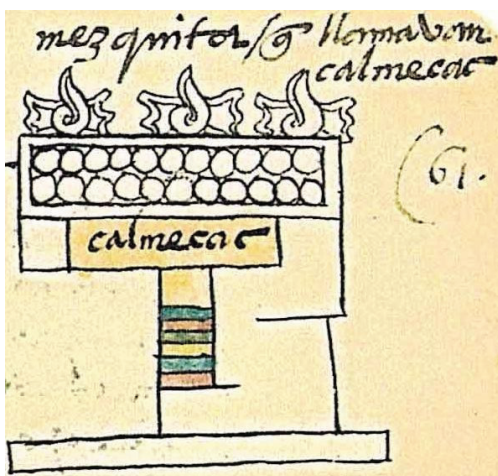 mezquita / q̃ llamavan.
calmecac
(61.
calmecac